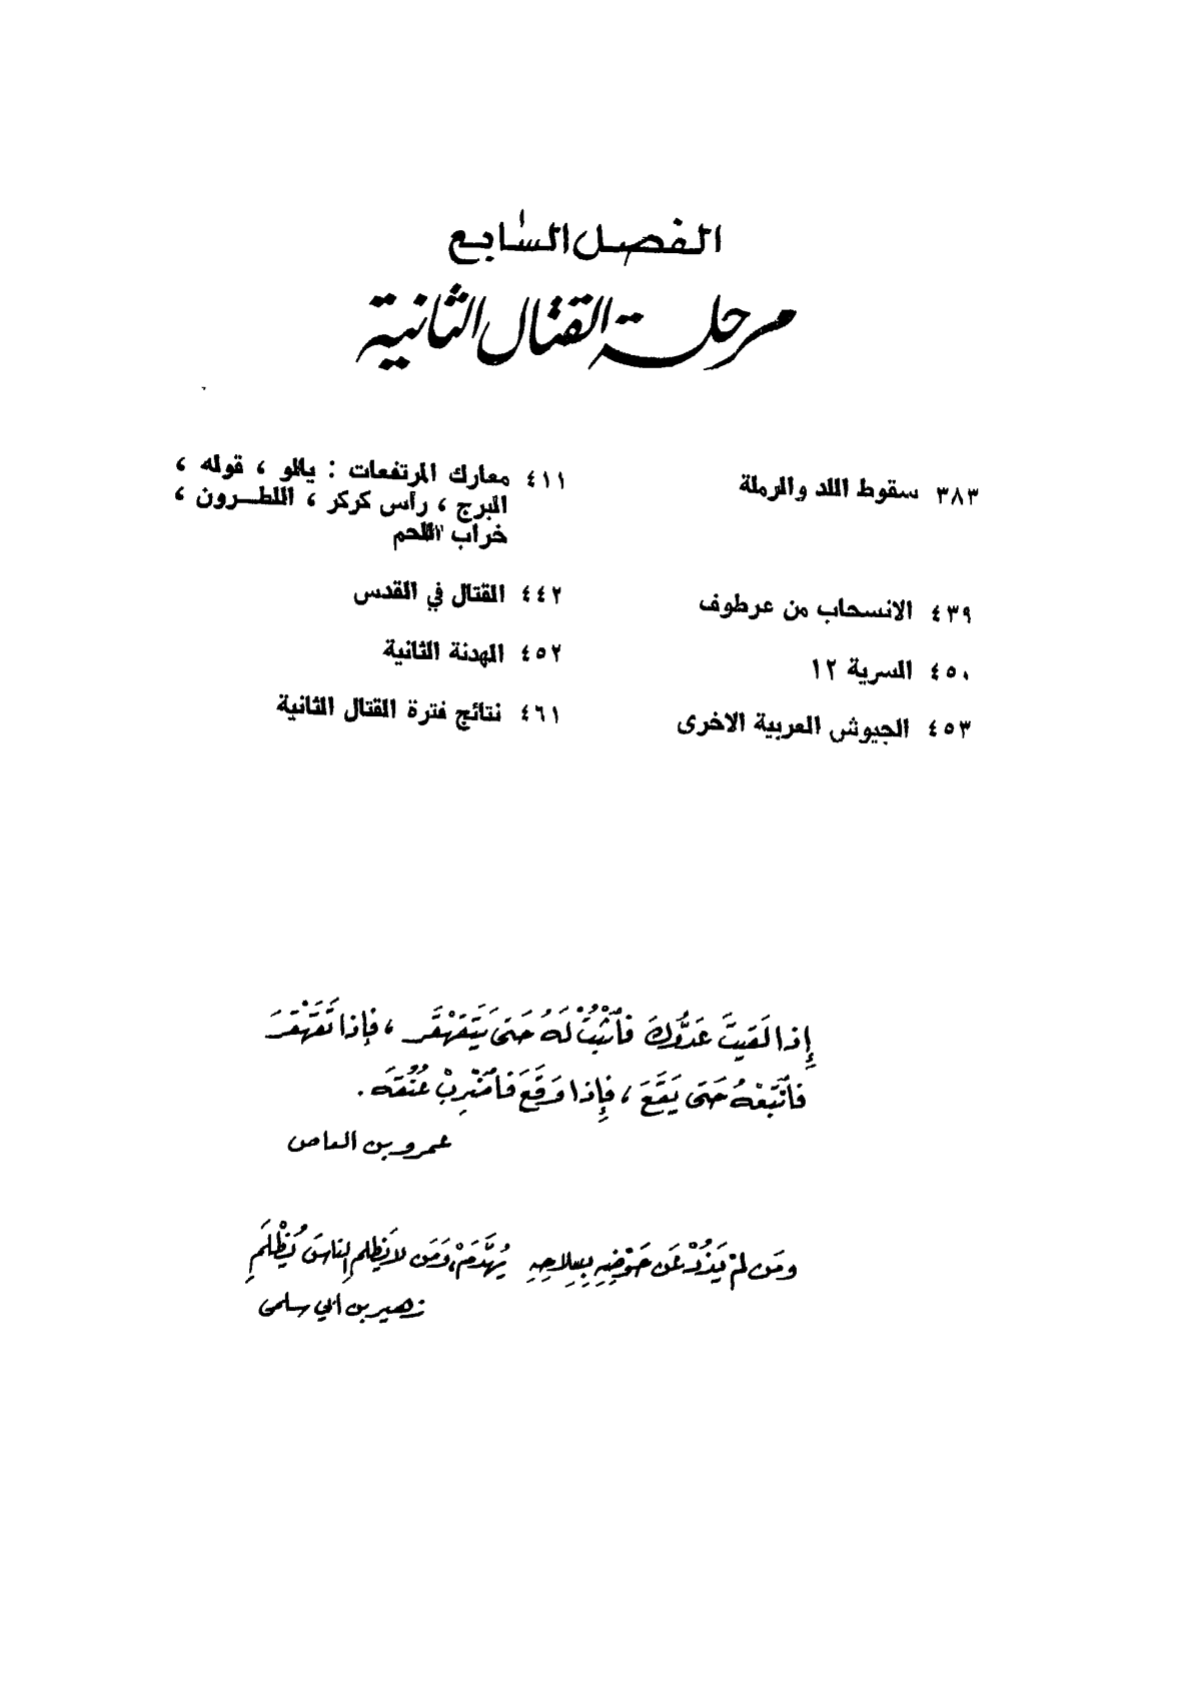 الفصل السابع
مرحلة القتال الثانية
٣٨٣ سقوط اللد والرملة
٤١١ معارك المرتفعات : يالو ، قوله ،
البرج ، رأس كركر ، اللطرون ،
خراب اللحم
٤٣٩ الانسحاب من عرطوف
٤٤٢ القتال في القدس
٤٥٠ السرية ١٢
٤٥٢ الهدنة الثانية
٤٥٣ الجيوش العربية الاخرى
٤٦١ نتائج فترة القتال الثانية
إِذا لَقيتَ عَدُوَّكَ فاثْبُتْ لَهُ حَتى يَتَقَهْقَر ، فإِذا تَقَهْقَرَ
فاتْبَعْهُ حَتى يَقَعَ ، فإِذا وَقَعَ فاضْرِبْ عُنُقَه .
عمرو بن العاص
ومَن لمْ يَذُدْ عَن حَوْضِهِ بِسِلاحِهِ يُهَدَّمْ، ومَن لا يَظلِمِ الناسَ يُظْلَمِ
زهير بن ابي سلمى